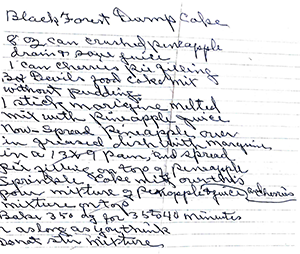 Black Forest Dump Cake
8 oz can crushed pineapple
drain & save juice
1 can cherries pie filling
Box Devils food cake mix
without pudding
1 stick margarine melted
mix with pineapple juice
Now - spread Pineapple over
in greased dish with margarine
in a 13x9 pan, add spread
pie filling on top of pineapple
Sprinkle cake mix over this
pour mixture of pineapple & juice and cherries
mixture on top
Bake 350 dg for 35 to 40 minutes
or as long as you think
Do not stir mixture